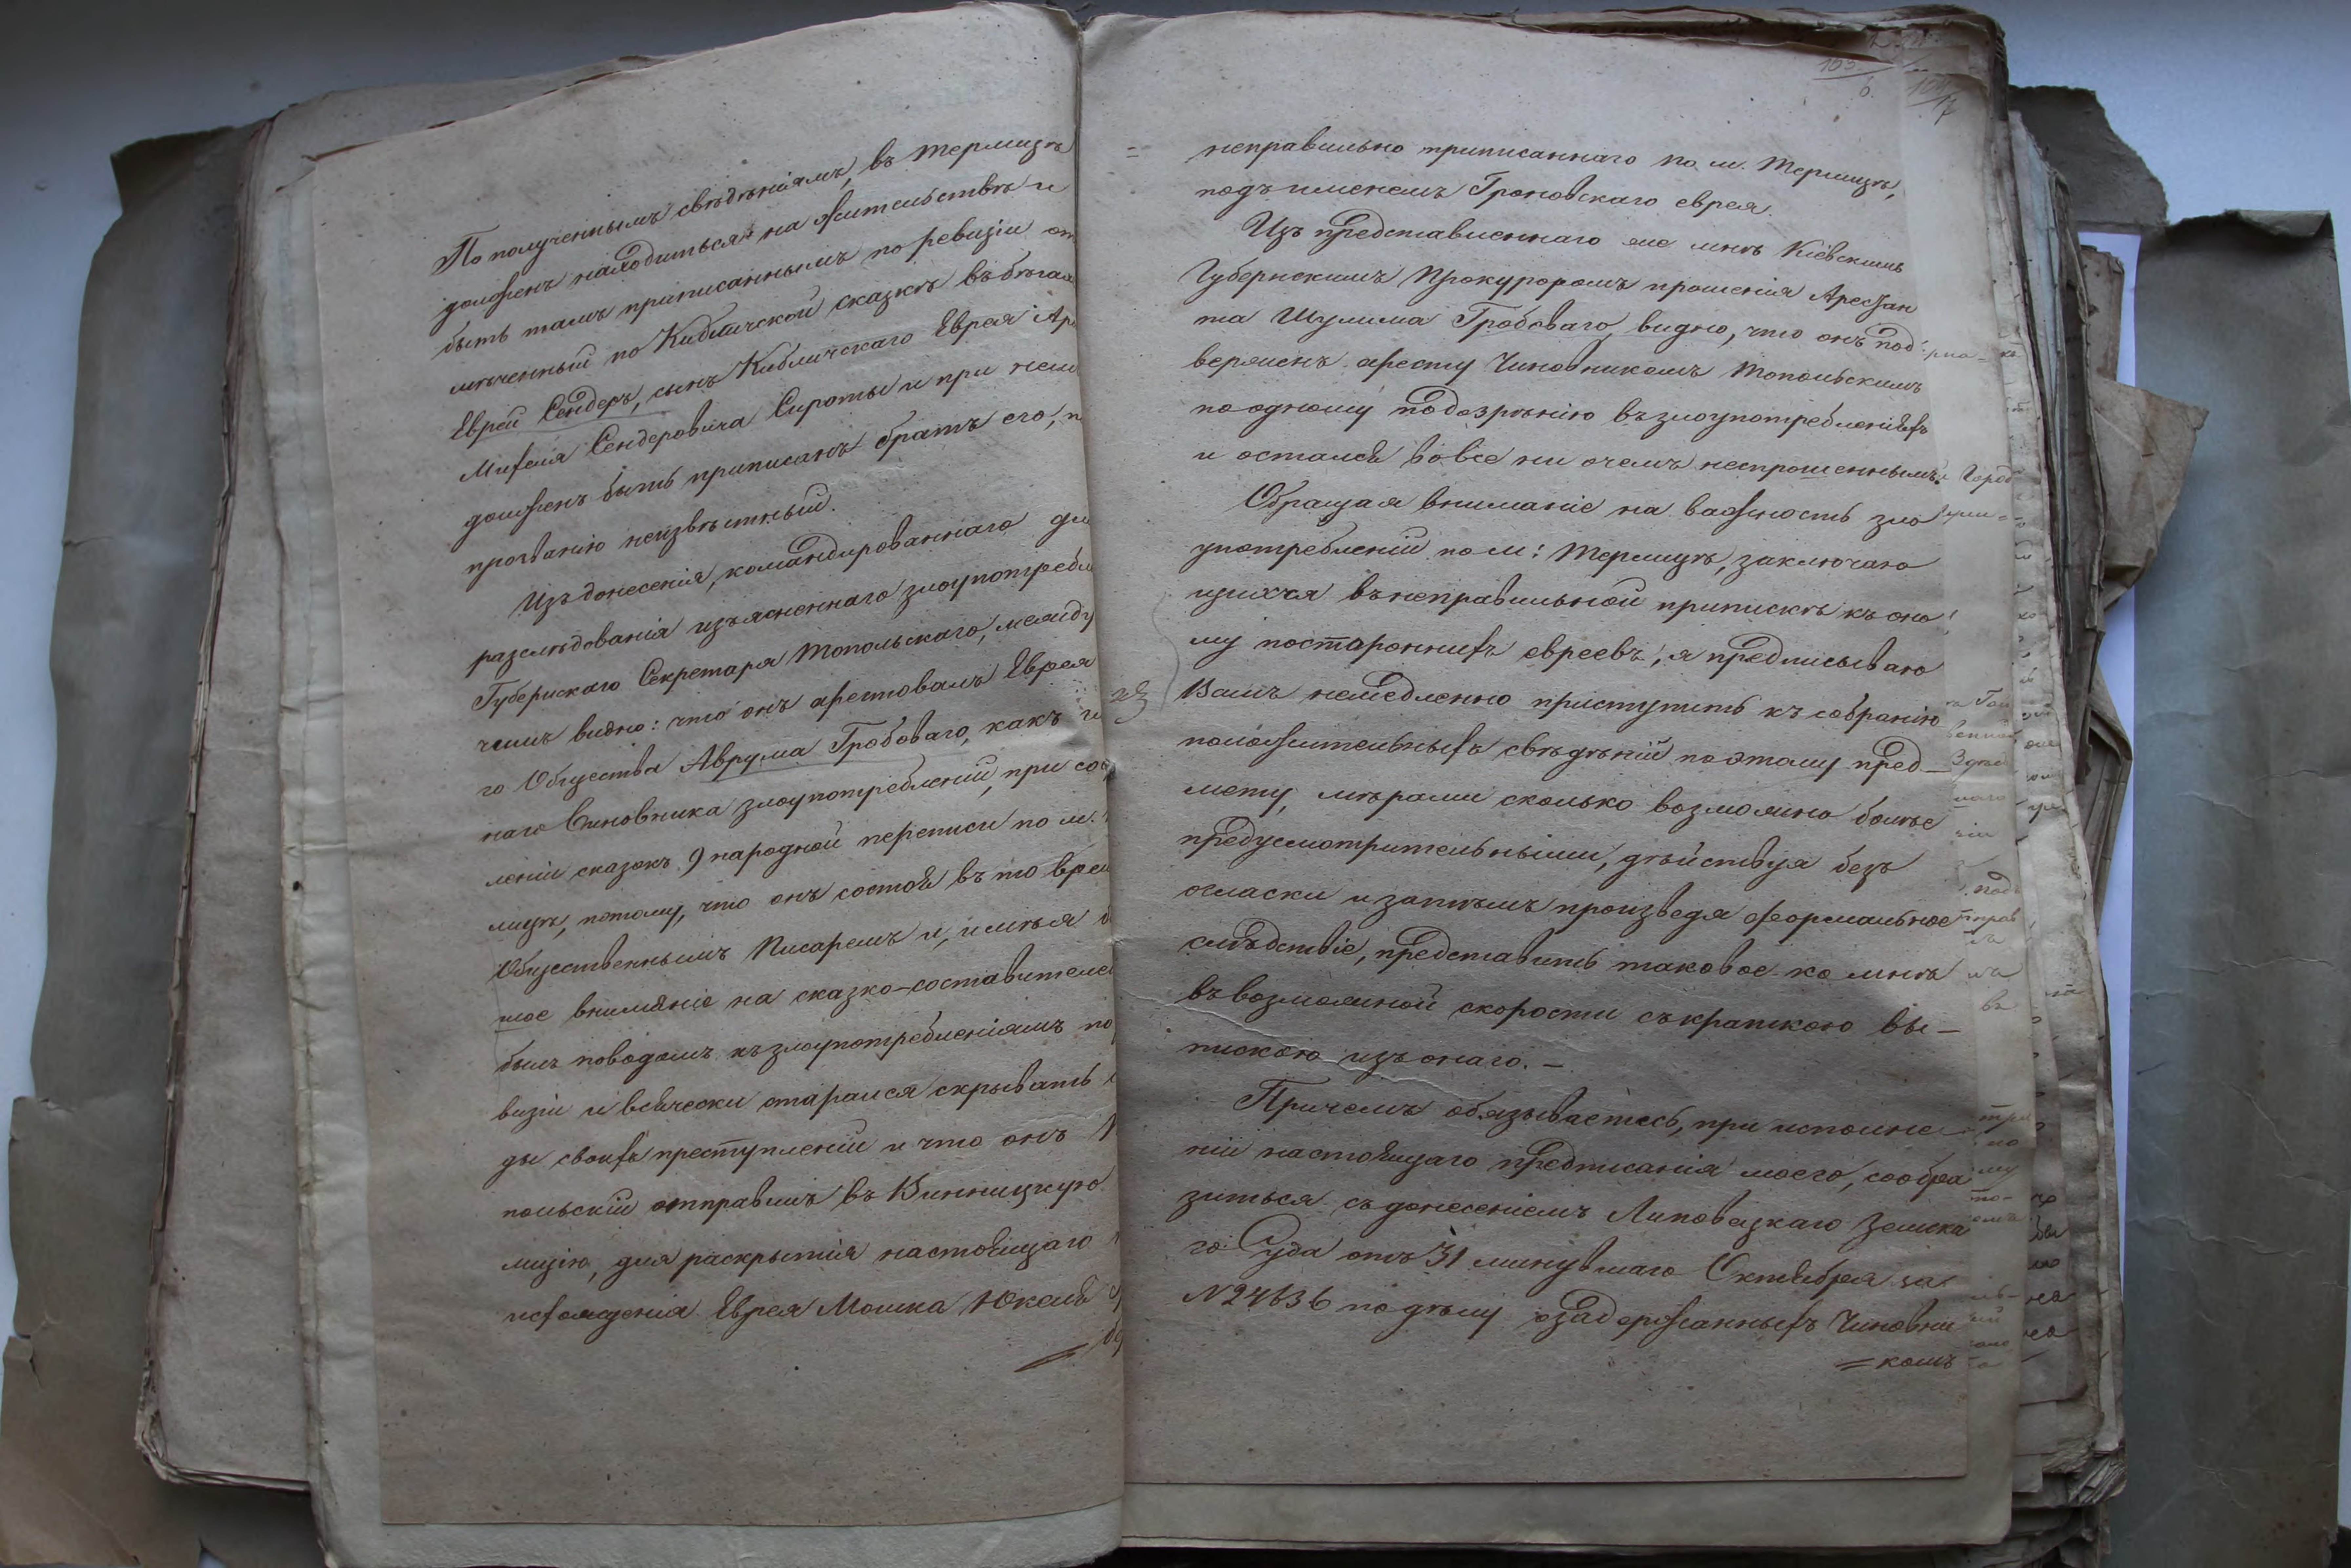 По полученнымъ свѣдѣніямъ, въ Термицѣ
долженъ находиться на жительствѣ и
быть тамъ приписаннымъ по ревизіи от
мѣченный по Кибличской сказкѣ въ бѣгах
Еврей Сендеръ, сынъ Кибличскаго Еврея
Михеля Сендеровича Сироты и при нем
долженъ быть приписанъ братъ его,
прозванію неизвѣстный.
Изъ донесенія, командированнаго дл
разслѣдованія изъясненнаго злоупотребл
Губернскаго Секретаря Топольскаго, между
чимъ видно: что онъ арестовалъ Еврея
го Общества Аврума Гробоваго, какъ
наго виновника злоупотребленій, при сос
леніи сказокъ 9 народной переписи по м.
мицѣ, потому, что онъ состоя въ то врем
Общественнымъ Писаремъ и, имѣя
шое вниманіе на сказко-составителе
былъ поводомъ къ злоупотребленіямъ по
визіи и всячески старался скрывать
ды своихъ преступленій и что онъ
польскій отправилъ въ Винницкую
лицію, для раскрытія настоящаго
исхожденія Еврея Мошка Юкеля
103
6.
неправильно приписаннаго по м. Термицѣ,
подъ именемъ Гроновскаго еврея.
Изъ представленнаго же мнѣ Кіевскимъ
Губернскимъ Прокуроромъ прошенія Арестан
та Шулима Гробоваго, видно, что онъ под
верженъ аресту Чиновникомъ Топольскимъ
по одному подозрѣнію въ злоупотребленіяхъ
и остался вовсе ни о чемъ неспрошеннымъ.
Обращая вниманіе на важность зло
употребленій по м: Термицѣ, заключаю
щихся въ неправильной припискѣ къ оно
му постороннихъ евреевъ, я предписываю
Вамъ немедленно приступить къ собранію
положительныхъ свѣдѣній по этому пред–
мету, мѣрами сколько возможно болѣе
предусмотрительными, дѣйствуя безъ
огласки и затѣмъ произведя формальное
слѣдствіе, представить таковое ко мнѣ
въ возможной скорости съ краткою вы–
пискою изъ онаго. –
Причемъ обязываетесь, при исполне–
ніи настоящаго предписанія моего, сообра
зиться съ донесеніемъ Липовецкаго Земска
го Суда отъ 31 минувшаго Октября за
№ 24636 по дѣлу о задержанныхъ Чиновни
= комъ